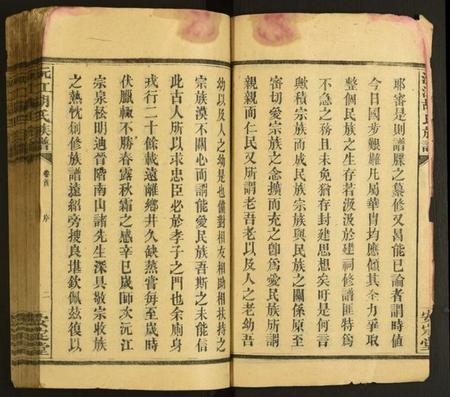 耶審是則譜牒之纂修又曷能已論者謂時値
今日國步艱難凡屬華胄均應傾其全力爭取
整個民族之生存若汲汲於建祠修譜匪特爲
不急之務且未免猶存封建思想矣吁是何言
歟積宗族而成民族宗族與民族之關係原至
密切愛宗族之念擴而充之卽爲愛民族所謂
親親而仁民又所謂老吾老以及人之老幼吾
幼以及人之幼是也儻對相友相助相扶持之
宗族漠不關心而謂能愛民族吾斯之未能信
此古人所以求忠臣必於孝子之門也余廁身
戎行二十餘載遠離鄉井久缺烝嘗每至歲時
伏臘輒不勝春露秋霜之感辛巳歲師次沅江
宗泉松明迪晉階南山諸先生深具敬宗收族
之熱忱創修族譜遠紹旁搜良堪欽佩茲復以
沅江胡氏族譜
卷首 序
二
安定堂